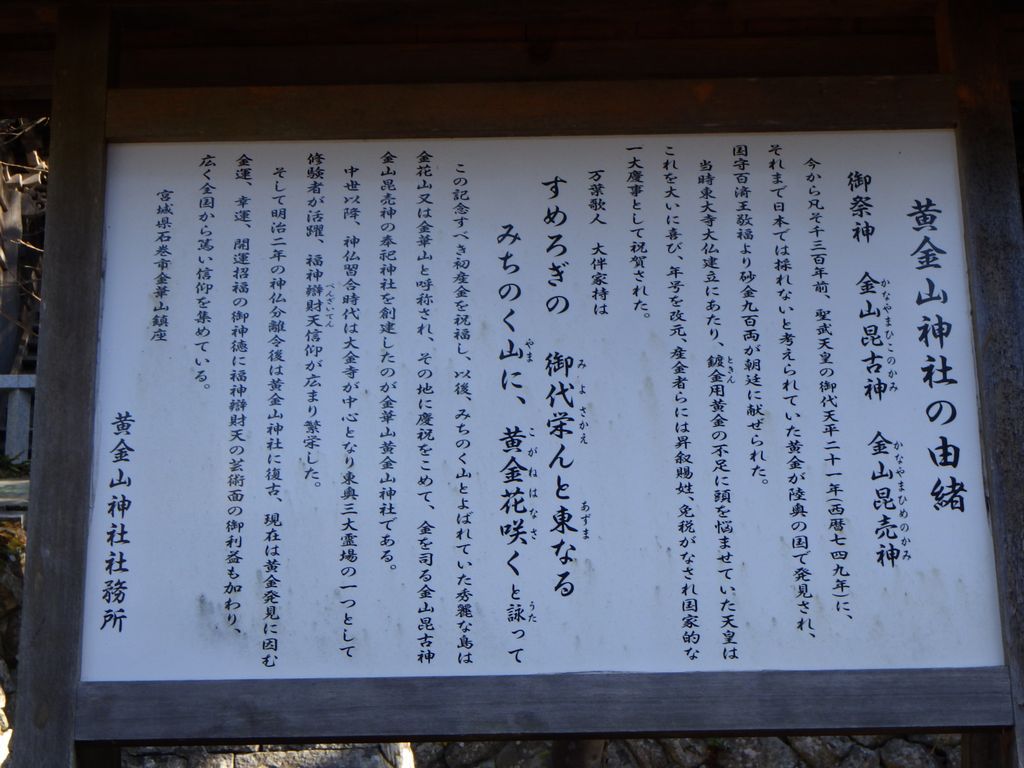 黄金山神社の由緒
御祭神　金山昆古神　金山昆売神
かなやまひこのかみ　かなやまひめのかみ
今から凡そ千三百年前、聖武天皇の御代天平二十一年(西暦七四九年)に、
それまで日本では採れないと考えられていた黄金が陸奥の国で発見され、
国守百済王敬福より砂金九百両が朝廷に献ぜられた。
当時東大寺大仏建立にあたり、鍍金用黄金の不足に頭を悩ませていた天皇は
ときん
これを大いに喜び、年号を改元、産金者らには昇叙賜姓、免税がなされ国家的な
一大慶事として祝賀された。
万葉歌人　大伴家持は
すめろぎの　御代栄んと東なる
みよさかえ　あずま
みちのく山に、黄金花咲くと詠って
やま　こがねはなさ　うた
この記念すべき初産金を祝福し、以後、みちのく山とよばれていた秀麗な島は
金花山又は金華山と呼称され、その地に慶祝をこめて、金を司る金山昆古神
金山昆売神の奉祀神社を創建したのが金華山黄金山神社である。
中世以降、神仏習合時代は大金寺が中心となり東奥三大霊場の一つとして
修験者が活躍、福神辯財天信仰が広まり繁栄した。
べんざいてん
そして明治二年の神仏分離令後は黄金山神社に復古、現在は黄金発見に因む
金運、幸運、開運招福の御神徳に福神辯財天の芸術面の御利益も加わり、
広く全国から篤い信仰を集めている。
宮城県石巻市金華山鎮座
黄金山神社社務所